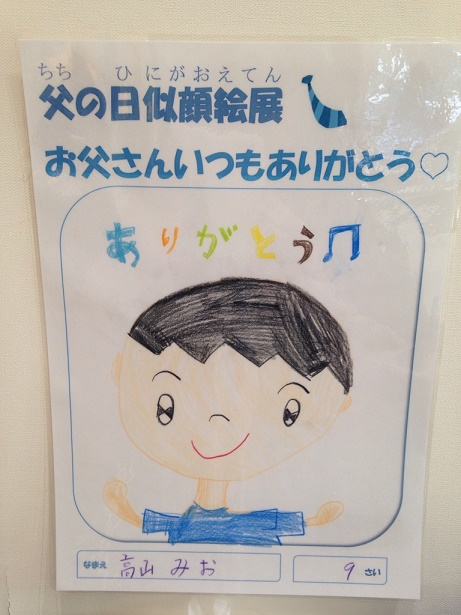 ちち ひにがおえてん
父の日似顔絵展
お父さんいつもありがとう♡
ありがとう♫
なまえ 高山 みお 9 さい